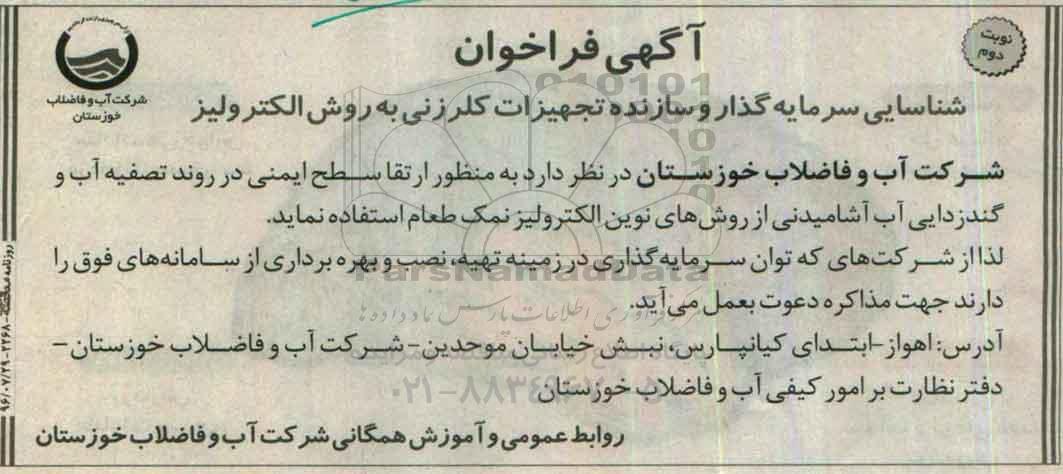 نوبت
دوم
آگهی فراخوان
شرکت آب و فاضلاب
خوزستان
شناسایی سرمایه گذار و سازنده تجهیزات کلرزنی به روش الکترولیز
شرکت آب و فاضلاب خوزستان در نظر دارد به منظور ارتقا سطح ایمنی در روند تصفیه آب و
گندزدایی آب آشامیدنی از روش‌های نوین الکترولیز نمک طعام استفاده نماید.
لذا از شرکت‌های که توان سرمایه گذاری در زمینه تهیه، نصب و بهره برداری از سامانه‌های فوق را
دارند جهت مذاکره دعوت بعمل می‌آید.
آدرس: اهواز-ابتدای کیانپارس، نبش خیابان موحدین- شرکت آب و فاضلاب خوزستان –
دفتر نظارت بر امور کیفی آب و فاضلاب خوزستان
روابط عمومی و آموزش همگانی شرکت آب و فاضلاب خوزستان
ParsNamadData
مرکز فرآوری اطلاعات پارس نماد داده ها
روزنامه ۲۲۶۸-۹۶/۰۷/۲۹